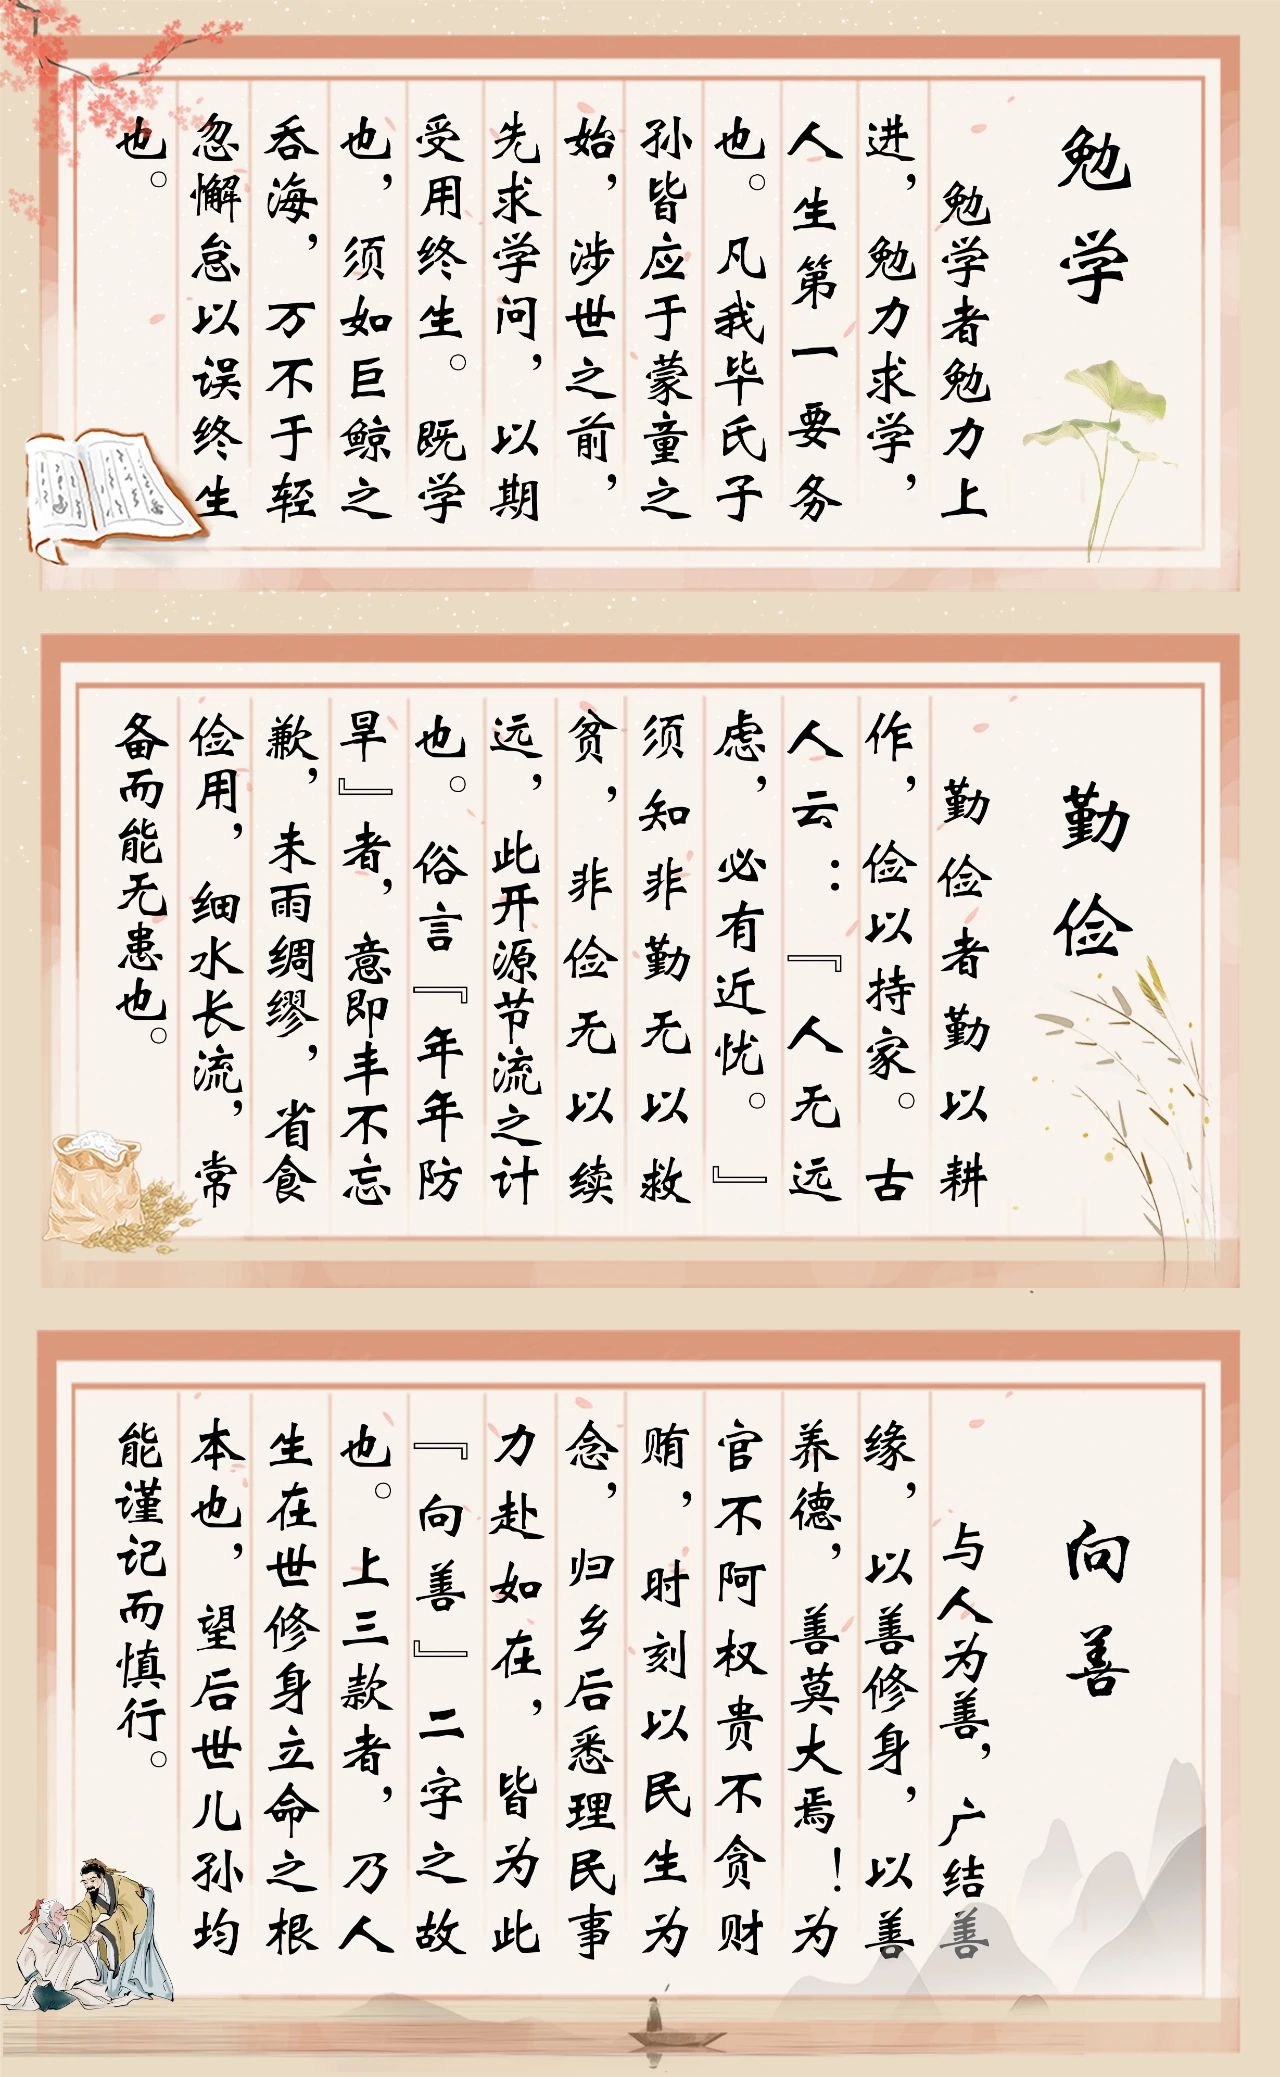 勉学
勉学者勉力上
进，勉力求学，
人生第一要务
也。凡我毕氏子
孙皆应于蒙童之
始，涉世之前，
先求学问，以期
受用终生。既学
也，须如巨鲸之
吞海，万不于轻
忽懈怠以误终生
也。
勤俭
勤俭者勤以耕
作，俭以持家。古
人云：『人无远
虑，必有近忧。』
须知非勤无以救
贫，非俭无以续
远，此开源节流之计
也。俗言『年年防
旱』者，意即丰不忘
歉，未雨绸缪，省食
俭用，细水长流，常
备而能无患也。
向善
与人为善，广结善
缘，以善修身，以善
养德，善莫大焉！为
官不阿权贵不贪财
贿，时刻以民生为
念，归乡后悉理民事
力赴如在，皆为此
『向善』二字之故
也。上三款者，乃人
生在世修身立命之根
本也，望后世儿孙均
能谨记而慎行。